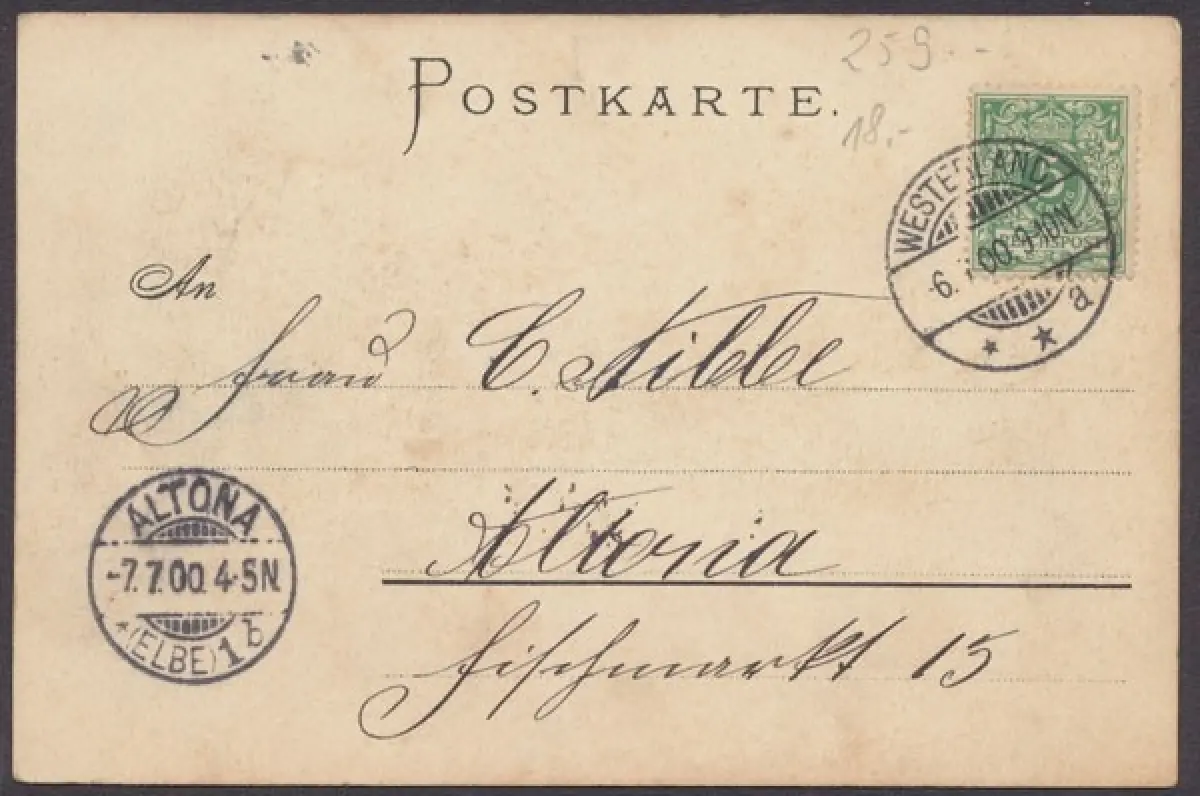 POSTKARTE.
259.--
18.-
WESTERLAND
6. 7. 00. 9-10N.
a
REICHSPOST
An
Frau C. Nibbe
ALTONA
-7.7.00. 4-5N.
(ELBE) 1 b
Altona
Fischmarkt 15